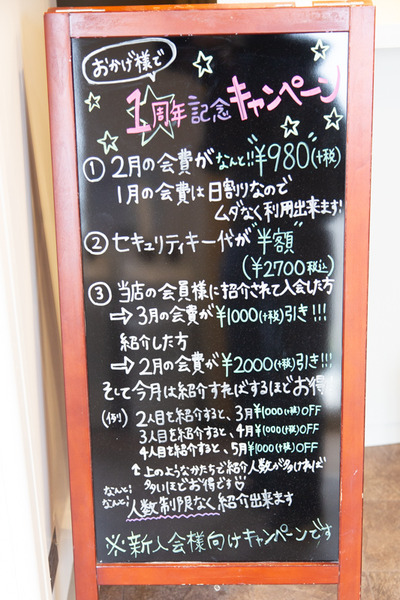 おかげ様で
1周年記念キャンペーン
① 2月の会費が なんと!! "¥980"(+税)
1月の会費は日割りなので
ムダなく利用出来ます!
② セキュリティキー代が"半額"
(¥2700税込)
③ 当店の会員様に紹介されて入会した方
⇨ 3月の会費が¥1000(+税)引き!!!
紹介した方
⇨ 2月の会費が¥2000(+税)引き!!!
そして今月は紹介すればするほどお得!
(例) 2人目を紹介すると、3月¥1000(+税)OFF
3人目を紹介すると、4月¥1000(+税)OFF
4人目を紹介すると、5月¥1000(+税)OFF
↑上のようなかたちで紹介人数が多ければ
多いほどお得です
なんと!
なんと! 人数制限なく紹介出来ます
※新入会様向けキャンペーンです